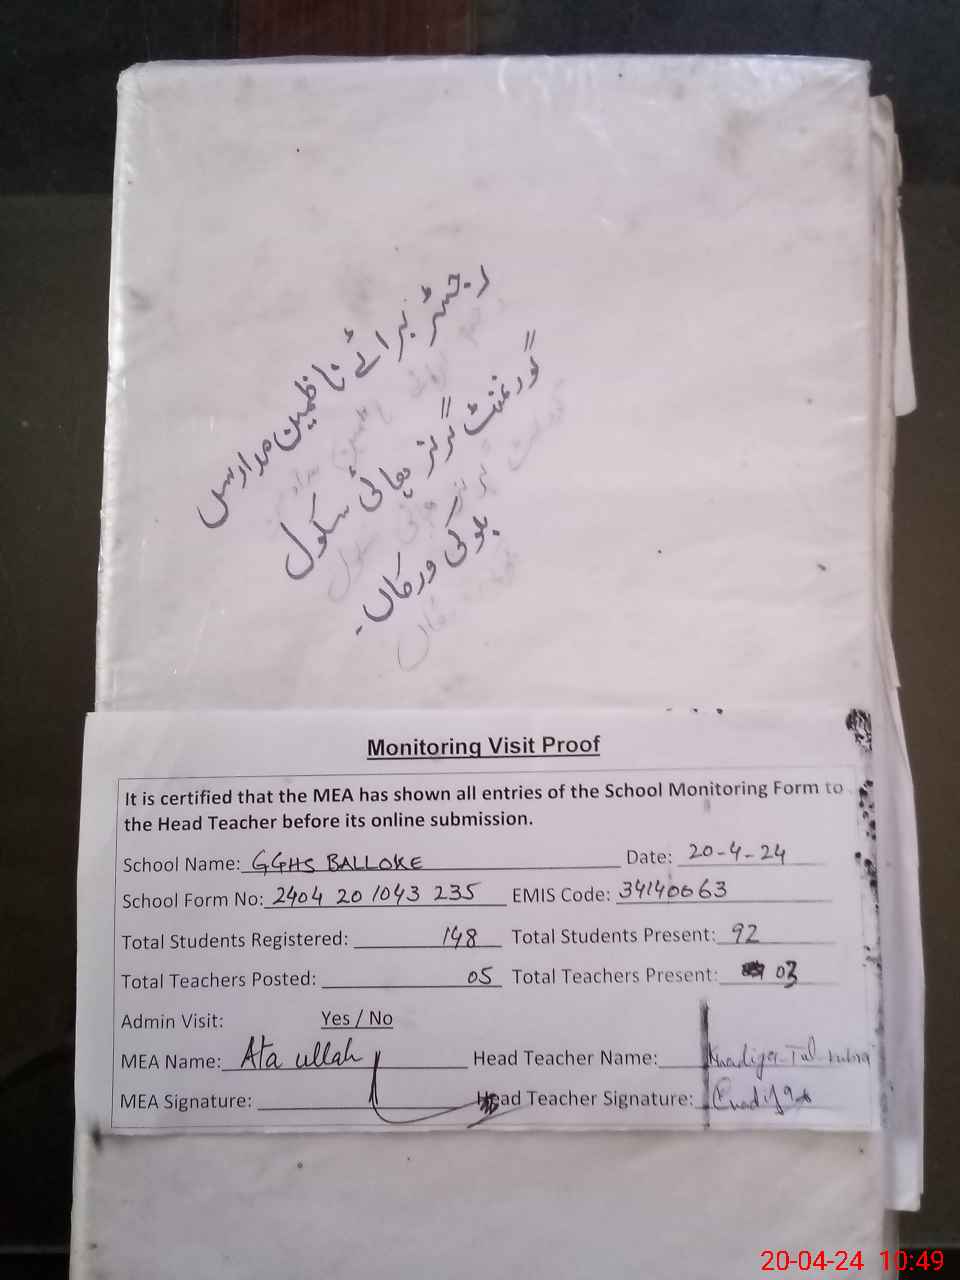 رجسٹر برائے ناظمین مدارس
گورنمنٹ گرلز ہائی سکول
بلوکی ورکاں۔
Monitoring Visit Proof
It is certified that the MEA has shown all entries of the School Monitoring Form to
the Head Teacher before its online submission.
School Name: GGHS BALLOKE Date: 20-4-24
School Form No: 2404 20 1043 235 EMIS Code: 34140063
Total Students Registered: 148 Total Students Present: 92
Total Teachers Posted: 05 Total Teachers Present: 03
Admin Visit: Yes / No
MEA Name: Ata ullah Head Teacher Name:
MEA Signature: Head Teacher Signature:
20-04-24 10:49